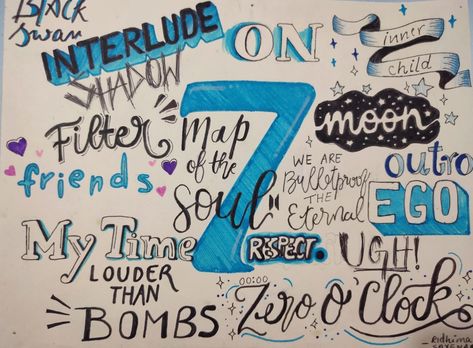 BlACK
Swan
INTERLUDE
SHADOW
ON
inner
child
Filter
Map
of the
Soul
7
moon
friends
WE ARE
Bulletproof
THE
Eternal
outro
EGO
My Time
RESPECT.
UGH!
LOUDER
THAN
BOMBS
00:00
Zero O'Clock
Ridhima